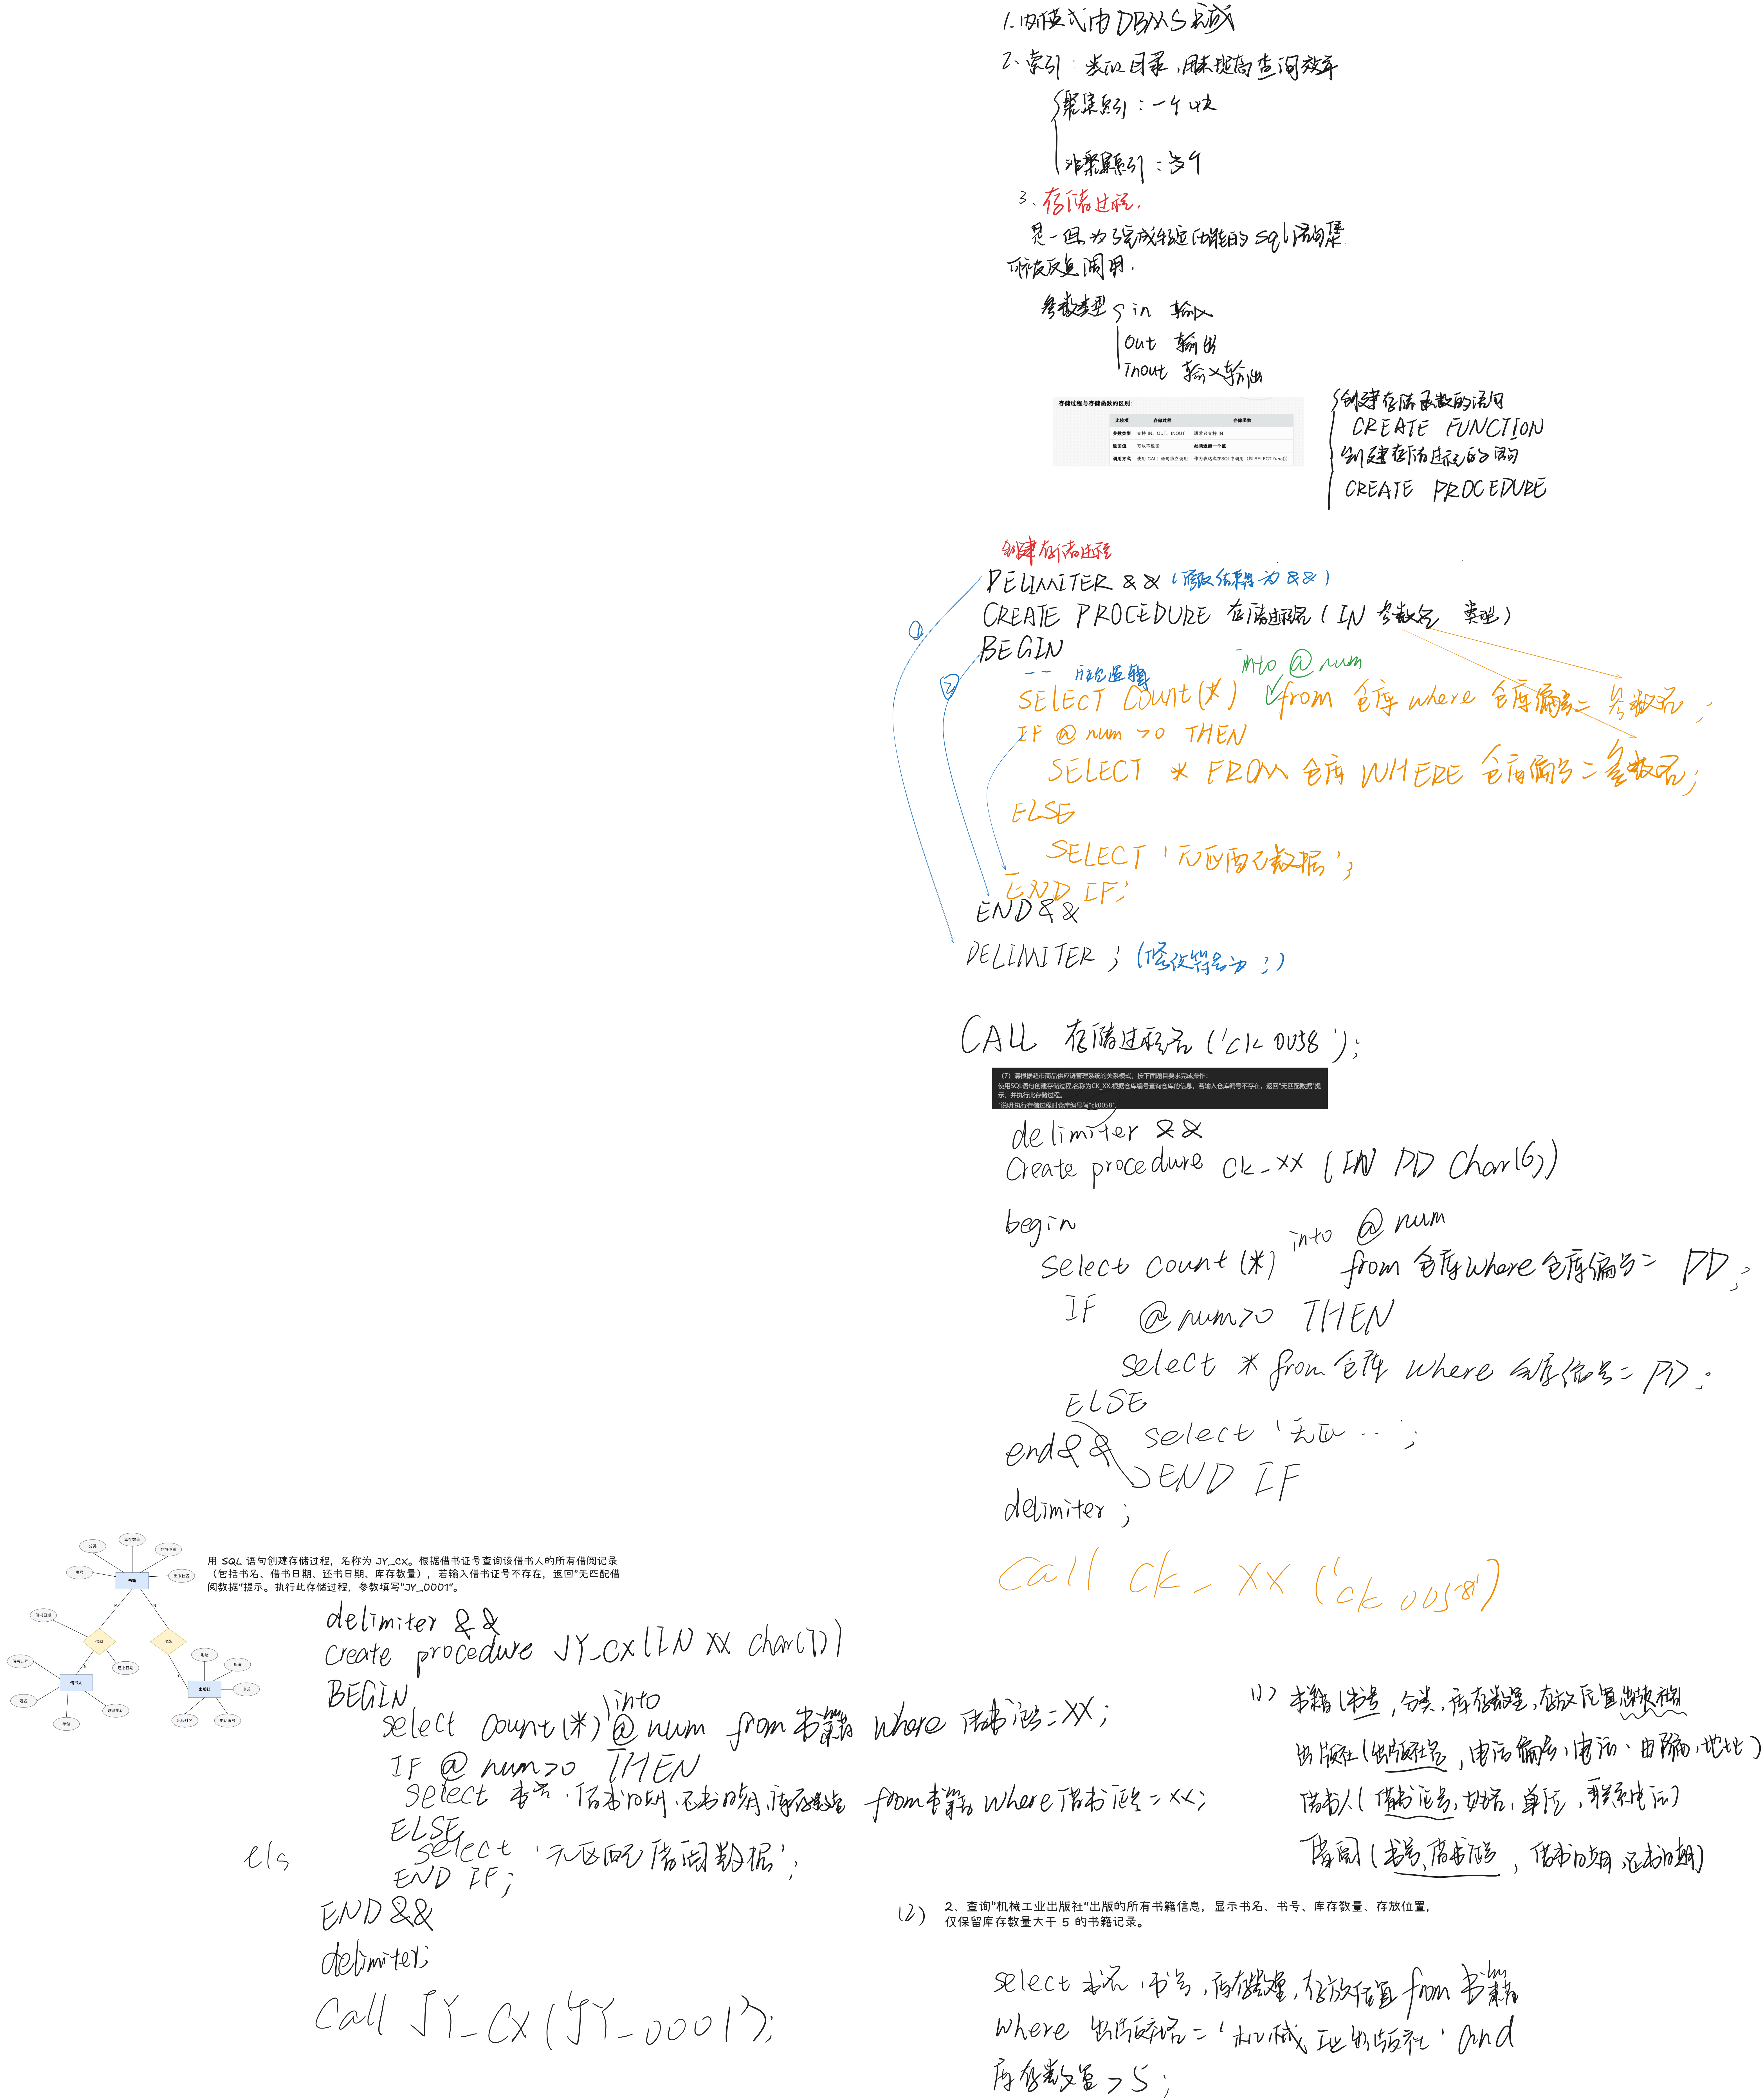 1.内模式由DBMS完成
2、索引：类似目录,用来提高查询效率
聚集索引：一个块
非聚集索引：多个
3、存储过程.
是一组为了完成特定功能的sql语句集
可被反复调用.
参数类型 in 输入
Out 输出
Inout 输入输出
存储过程与存储函数的区别：
比较项 存储过程 存储函数
参数类型 支持 IN、OUT、INOUT 通常只支持 IN
返回值 可以不返回 必须返回一个值
调用方式 使用 CALL 语句独立调用 作为表达式在SQL中调用（如 SELECT func()）
创建存储函数的语句
CREATE FUNCTION
创建存储过程的语句
CREATE PROCEDURE
创建存储过程
DELIMITER && (修改结束符为 &&)
CREATE PROCEDURE 存储过程名 (IN 参数名 类型)
①
BEGIN
②
-- 功能逻辑
into @num
SELECT Count(*) from 仓库 where 仓库编号=参数名;
IF @num >0 THEN
SELECT * FROM 仓库 WHERE 仓库编号=参数名;
ELSE
SELECT '无匹配数据';
END IF;
END &&
DELIMITER ; (修改符号为 ;)
CALL 存储过程名 ('ck0058');
（7）请根据超市商品供应链管理系统的关系模式，按下面题目要求完成操作：
使用SQL语句创建存储过程,名称为CK_XX,根据仓库编号查询仓库的信息，若输入仓库编号不存在，返回"无匹配数据"提
示，并执行此存储过程。
"说明:执行存储过程时仓库编号"ck0058"
delimiter &&
Create procedure ck_xx (IN PD Char(6))
begin
into @num
select count(*) from 仓库 where 仓库编号= PD;
IF @num>0 THEN
select * from 仓库 where 仓库编号= PD;
ELSE
select '无匹...';
end&&
END IF
delimiter ;
Call ck_xx ('ck0058')
书籍
分类
库存数量
存放位置
书号
出版社名
M
N
借书日期
借阅
出版
借书证号
N
还书日期
1
地址
邮编
借书人
出版社
电话
姓名
单位
联系电话
出版社名
电话编号
用 SQL 语句创建存储过程，名称为 JY_CX。根据借书证号查询该借书人的所有借阅记录
（包括书名、借书日期、还书日期、库存数量），若输入借书证号不存在，返回"无匹配借
阅数据"提示。执行此存储过程，参数填写"JY_0001"。
delimiter &&
create procedure JY_CX(IN XX char(7))
BEGIN
into
select count(*) @num from 书籍 where 借书证号=XX;
IF @num>0 THEN
select 书名.借书日期,还书日期,库存数量 from书籍 where 借书证号=XX;
ELSE
els
select '无匹配借阅数据';
END IF;
END &&
delimiter;
Call JY_CX('JY_0001');
(1) 书籍(书号,分类,库存数量,存放位置,出版社名
出版社(出版社名,电话编号,电话、邮编,地址)
借书人(借书证号,姓名、单位,联系电话)
借阅(书号,借书证号,借书日期,还书日期)
(2) 2、查询"机械工业出版社"出版的所有书籍信息，显示书名、书号、库存数量、存放位置，
仅保留库存数量大于 5 的书籍记录。
select 书名,书号,库存数量,存放位置 from 书籍
where 出版社名='机械工业出版社' and
库存数量>5;